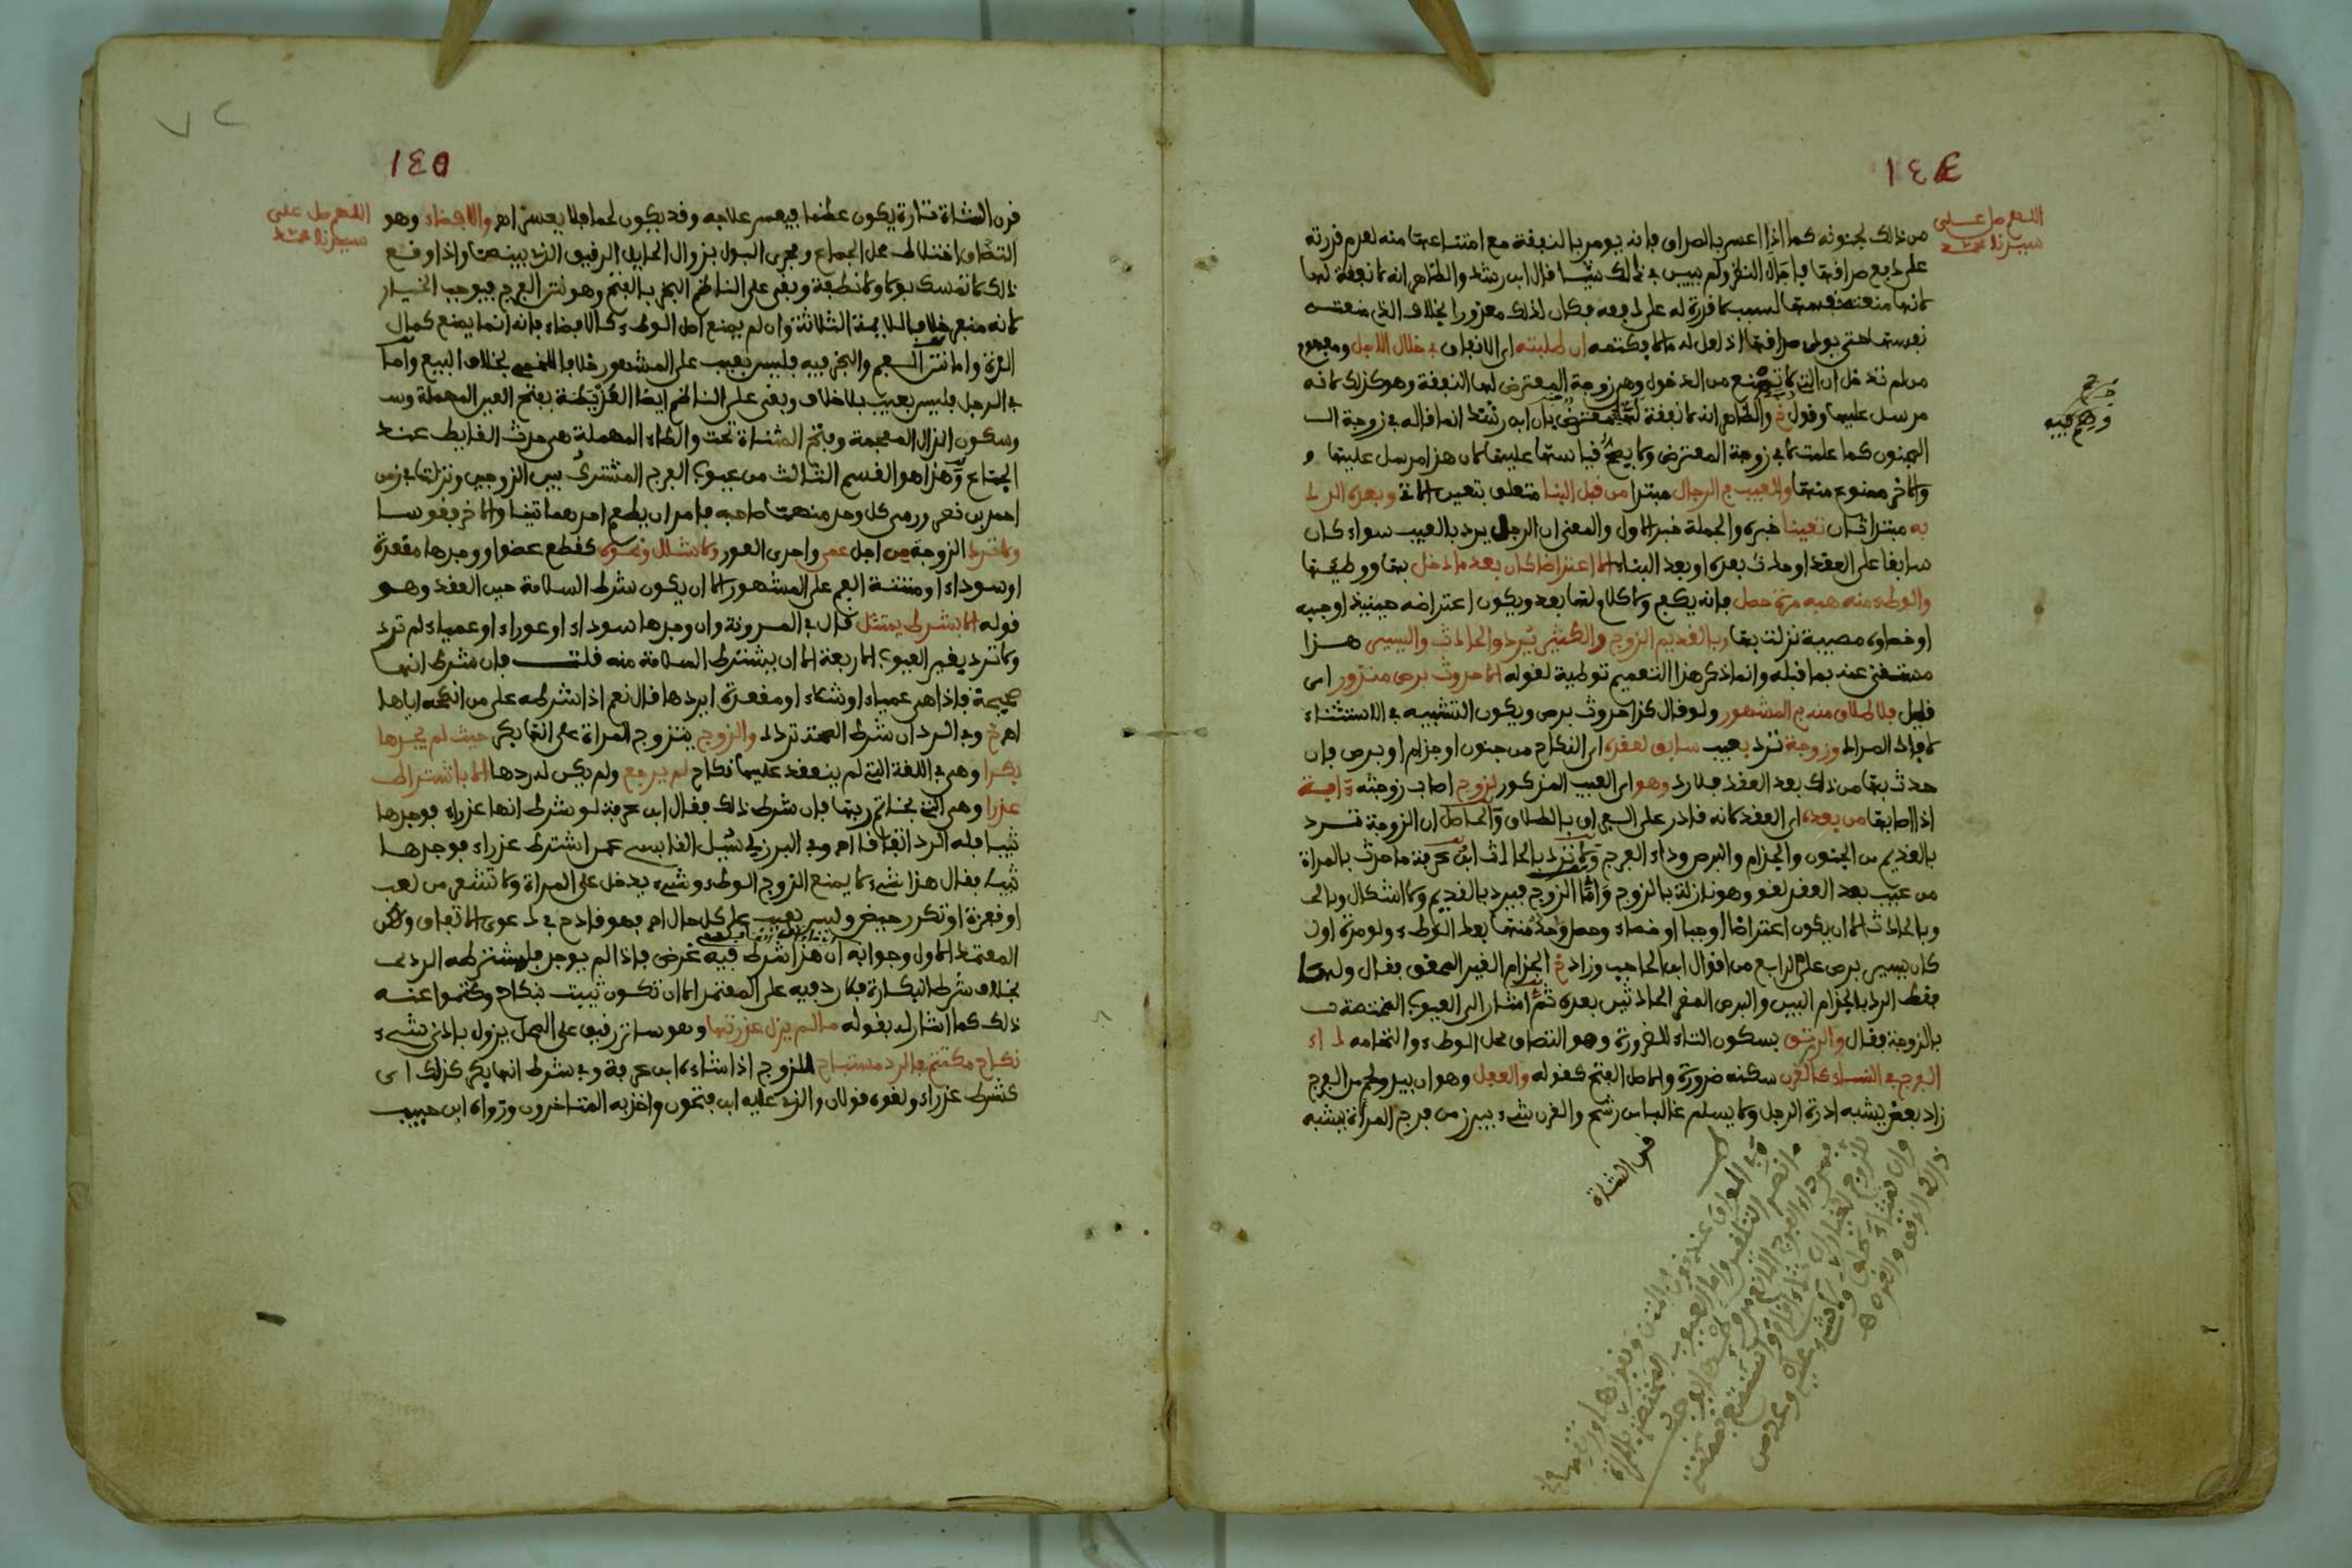 ١٤٤
اللهم صل على
سيدنا محمد
من ذلك لجنونه كما اذا اعسر بالصداق فانه يومر بالنفقة مع امتناعها منه لعدم قدرته
على دفع صداقها فاجال النظر ولم يبين في ذلك شيا قال ابن رشد والظاهر انه لا نفقة لها
لانها منعته نفسها لسبب لا قدرة له على دفعه فكان لذلك معذورا بخلاف الذي منعته
نفسها حتى يودي صداقها اذ لعل له مالا يكتمه ان طلبته اي الانفاق في خلال الاجل ومفهوم
من لم تدخل ان التي لا تمنع من الدخول وهي زوجة المعترض لها النفقة وهو كذلك لانه
مرسل عليها وقول خ والظاهر انه لا نفقة لها بان ابن رشد انما قاله في زوجة ال
المجنون كما علمت لا في زوجة المعترض ولا يصح قياسها عليها لان هذا مرسل عليها و
والاخر ممنوع منها والعيب في الرجال مبتدا من قبل البنا متعلق بتعين الاتي وبعده الرد
به مبتدا ثان تعينا خبره والجملة خبر الاول والمعنى ان الرجل يرد بالعيب سواء كان
سابقا على العقد او حدث بعده او بعد البناء الا اعتراضا كان بعدما دخل بها ووطئها
والوطء منه هبه مرة حصل فانه يكفي ولا كلام لها بعد ويكون اعتراضه حينيذ او جبه
او خصاوه مصيبة نزلت بها وبالقديم الزوج والكثير يرد والحادث واليسير هذا
مستغنى عنه بما قبله وانما ذكر هذا التعميم توطية لقوله الا حدوث برص منزور اي
قليل فلا طلاق منه في المشهور ولو قال كذا حدوث برص ويكون التشبيه في الاستثناء
لافاد المراد وزوجة ترد بعيب سابق لعقده اي النكاح من جنون او جذام او برص فان
حدث بها من ذلك بعد العقد فلا رد وهو اي العيب المذكور لزوج اصاب زوجته آفة
اذا اصابها من بعده اي العقد لانه قادر على الفراق بالطلاق والحاصل ان الزوجة ترد
بالقديم من الجنون والجذام والبرص وداء الفرج ولا ترد بالحادث ابن عرفة ما حدث بالمراة
من عيب بعد العقد لغو وهو نازلة بالزوج واما الزوج فيرد بالقديم ولا اشكال وبالحـ
وبالحادث الا ان يكون اعتراضا او جبا او خصاء وحصل واحد منها بعد الوطء ولو مرة او ان
كان يسير برص على الرابع من اقوال ابن الحاجب وزاد خ الجذام الغير المحقق فقال ولها
فقط الرد بالجذام البين والبرص المضر الحادثين بعده ثم اشار الى العيوب المختصة بـ
بالزوجة فقال والرتق بسكون التاء للضرورة وهو التصاق محل الوطء والتحامه داء
الفرج في النساء كالقرن سكنه ضرورة والاصل الفتح كقوله والعفل وهو ان يبدو لحم من الفرج
زاد بعض يشبه ادرة الرجل ولا يسلم غالبا من رشح والقرن شيء يبرز من فرج المراة يشبه
قرن الشاة
١٤٥
اللهم صل على
سيدنا محمد
قرن الشاة تارة يكون عظما فيعسر علاجه وقد يكون لحما فلا يعسر اهـ والافضاء وهو
التصاق اختلاط محل الجماع ومجرى البول بزوال الحايل الرقيق الذي بينهما واذا وقع
ذلك لا تمسك بولا ولا نطفة وبقي على الناظم البخر بالفتح وهو نتن الفرج فيوجب الخيار
لانه منع خلافا للايمة الثلاثة وان لم يمنع اصل الوطء كالافضاء فانه انما يمنع كمال
اللذة واما نتن الفم والبخر فيه فليس بعيب على المشهور خلافا للخمي بخلاف البيع واما
في الرجل فليس بعيب بلا خلاف وبقي على الناظم ايضا العذيطة بفتح العين المهملة وسـ
وسكون الذال المعجمة وفتح المثناة تحت والطاء المهملة هي حدث الغايط عند
الجماع وهذا هو القسم الثالث من عيوب الفرج المشترك بين الزوجين ونزلت في زمن
احمد بن نصر ورمى كل واحد منهما صاحبه فامر ان يطعم احدهما تينا والاخر فقوسا
ولا ترد الزوجة من اجل عمى واحرى العور ولا شلل ونحوه كقطع عضو او وجدها مقعدة
او سوداء او منتنة الفم على المشهور الا ان يكون شرط السلامة حين العقد وهو
قوله الا بشرط يمتثل قال في المدونة وان وجدها سوداء او عوراء او عمياء لم ترد
ولا ترد بغير العيوب الاربعة الا ان يشترط السلامة منه قلت فان شرط انها
صحيحة فاذا هي عمياء او شلاء او مقعدة ايردها قال نعم اذا شرطه على من انكحه اياها
اهـ خ وفي الرد ان شرط الصحة تردد والزوج يتزوج المراة على انها بكر حيث لم يجدها
بكرا وهي في اللغة التي لم ينعقد عليها نكاح لم يرجع ولم يكن له ردها الا باشتراط
عذرا وهي التي بخاتم ربها فان شرط ذلك فقال ابن عرفة لو شرط انها عذراء فوجدها
ثيبا فله الرد اتفاقا اهـ وفي البرزلي سئل القابسي عمن اشترط عذراء فوجدها
ثيبا فقال هذا شيء لا يمنع الزوج الوطء وشيء يدخل على المراة ولا تشعر من لعب
او قفزة او تكرر حيض وليس بعيب على كل حال اهـ فهو قادح في دعوى الاتفاق ولكن
المعتمد الاول وجوابه ان هذا شرط فيه غرض فاذا لم يوجد فلمشترطه الرد
بخلاف شرط البكارة فلا رد فيه على المعتمد الا ان تكون ثيبت بنكاح وكتموا عنه
ذلك كما اشار له بقوله مالم يزل عذرتها وهو ساتر رقيق على المحل يزول بادنى شيء
نكاح مكتتم فالرد مستباح للزوج اذا شاءه ابن عرفة وفي شرط انها بكر كذلك اي
كشرط عذراء ولغوه قولان والذي عليه ابن فتحون واخذ به المتاخرون ورواه ابن حبيب